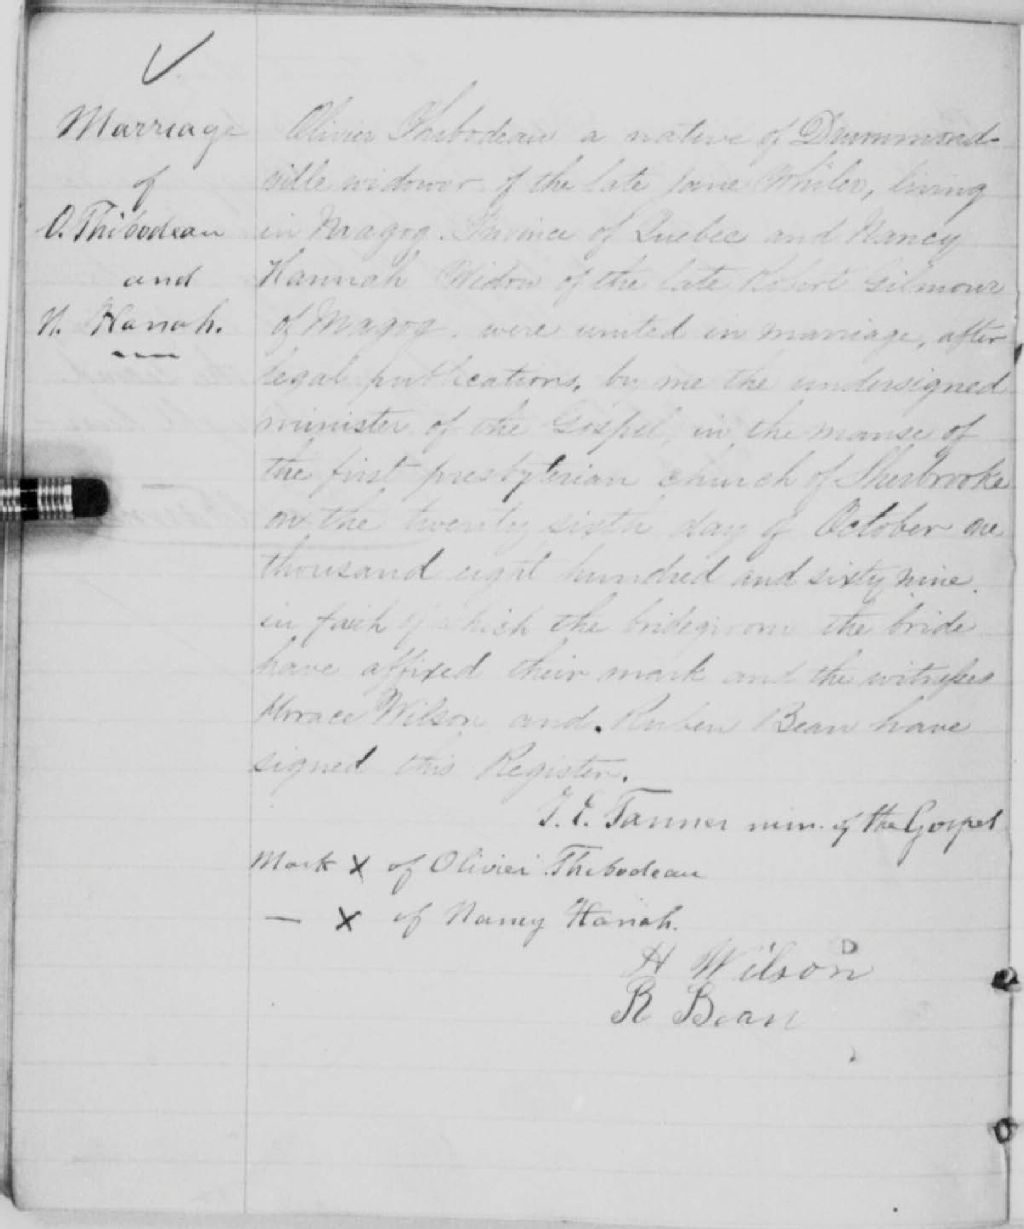 Marriage
of
O. Thibodeau
and
N. Hanah.
Olivier Thibodeau a native of Drummond-
ville widower of the late Jane Whiler, living
in Magog. Province of Quebec and Nancy
Hannah Widow of the late Robert Gilmour
of Magog. were united in marriage, after
legal publications, by me the undersigned
minister of the Gospel, in the manse of
the first presbyterian church of Sherbrooke
on the twenty sixth day of October one
thousand eight hundred and sixty nine.
in faith of which the bridegroom the bride
have affixed their mark and the witnesses
Horace Wilson and. Ruben Bean have
signed this Register.
J. E. Tanner min. of the Gospel
Mark X of Olivier Thibodeau
— X of Nancy Hanah.
H D Wilson
R Bean